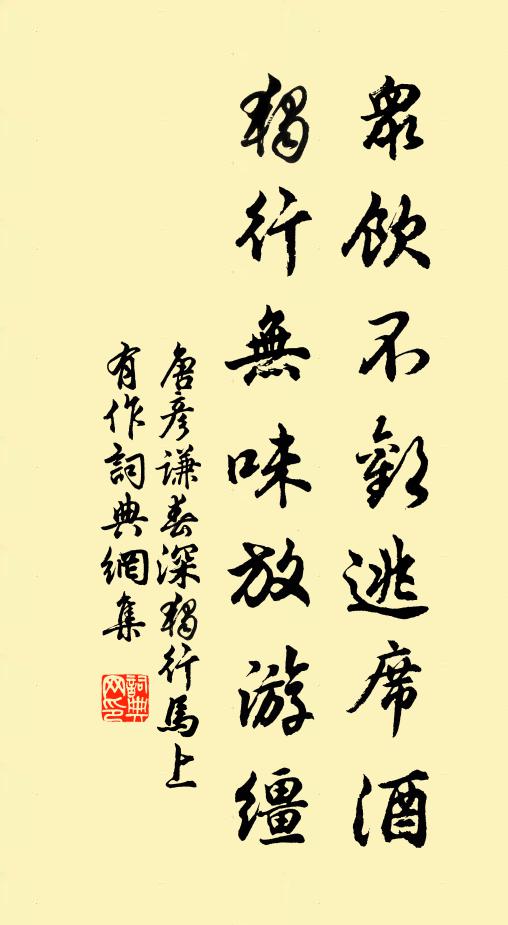 眾飲不歡逃席酒
獨行無味放游繮
唐彥謙春深獨行馬上
有作詞典網集
詞典
网印